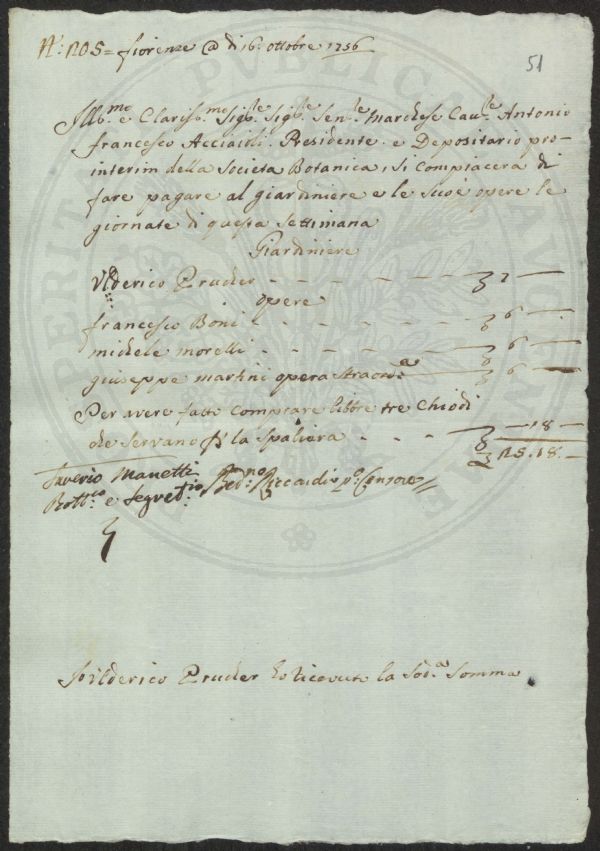 N.° 205 = fiorenze @ dì 16. ottobre 1756
51
Ill.mo e Clariss.mo Sig.re Sig.re Sen.re Marchese Cav.re Antonio
francesco Acciaioli Presidente e Depositario pro-
interim della Societa Botanica, si compiacerà di
fare pagare al giardiniere e le sue opere le
giornate di questa settimana
Giardiniere
Ulderico Prucher - - - - - - 7 —
opere
francesco Boni - - - - - - 6 —
michele morelli - - - - - - 6 —
giuseppe martini opera straord.a — 6 —
Per avere fatto comprare libbre tre Chiodi
che servano p la spaliera - - - — 18 —
25.18.—
Saverio Manetti
Bott.co e Segret.io
Riccardi p.o Censore
Io Ulderico Prucher ho ricevuto la Sod.a Somma
PERITAT PVBLICA